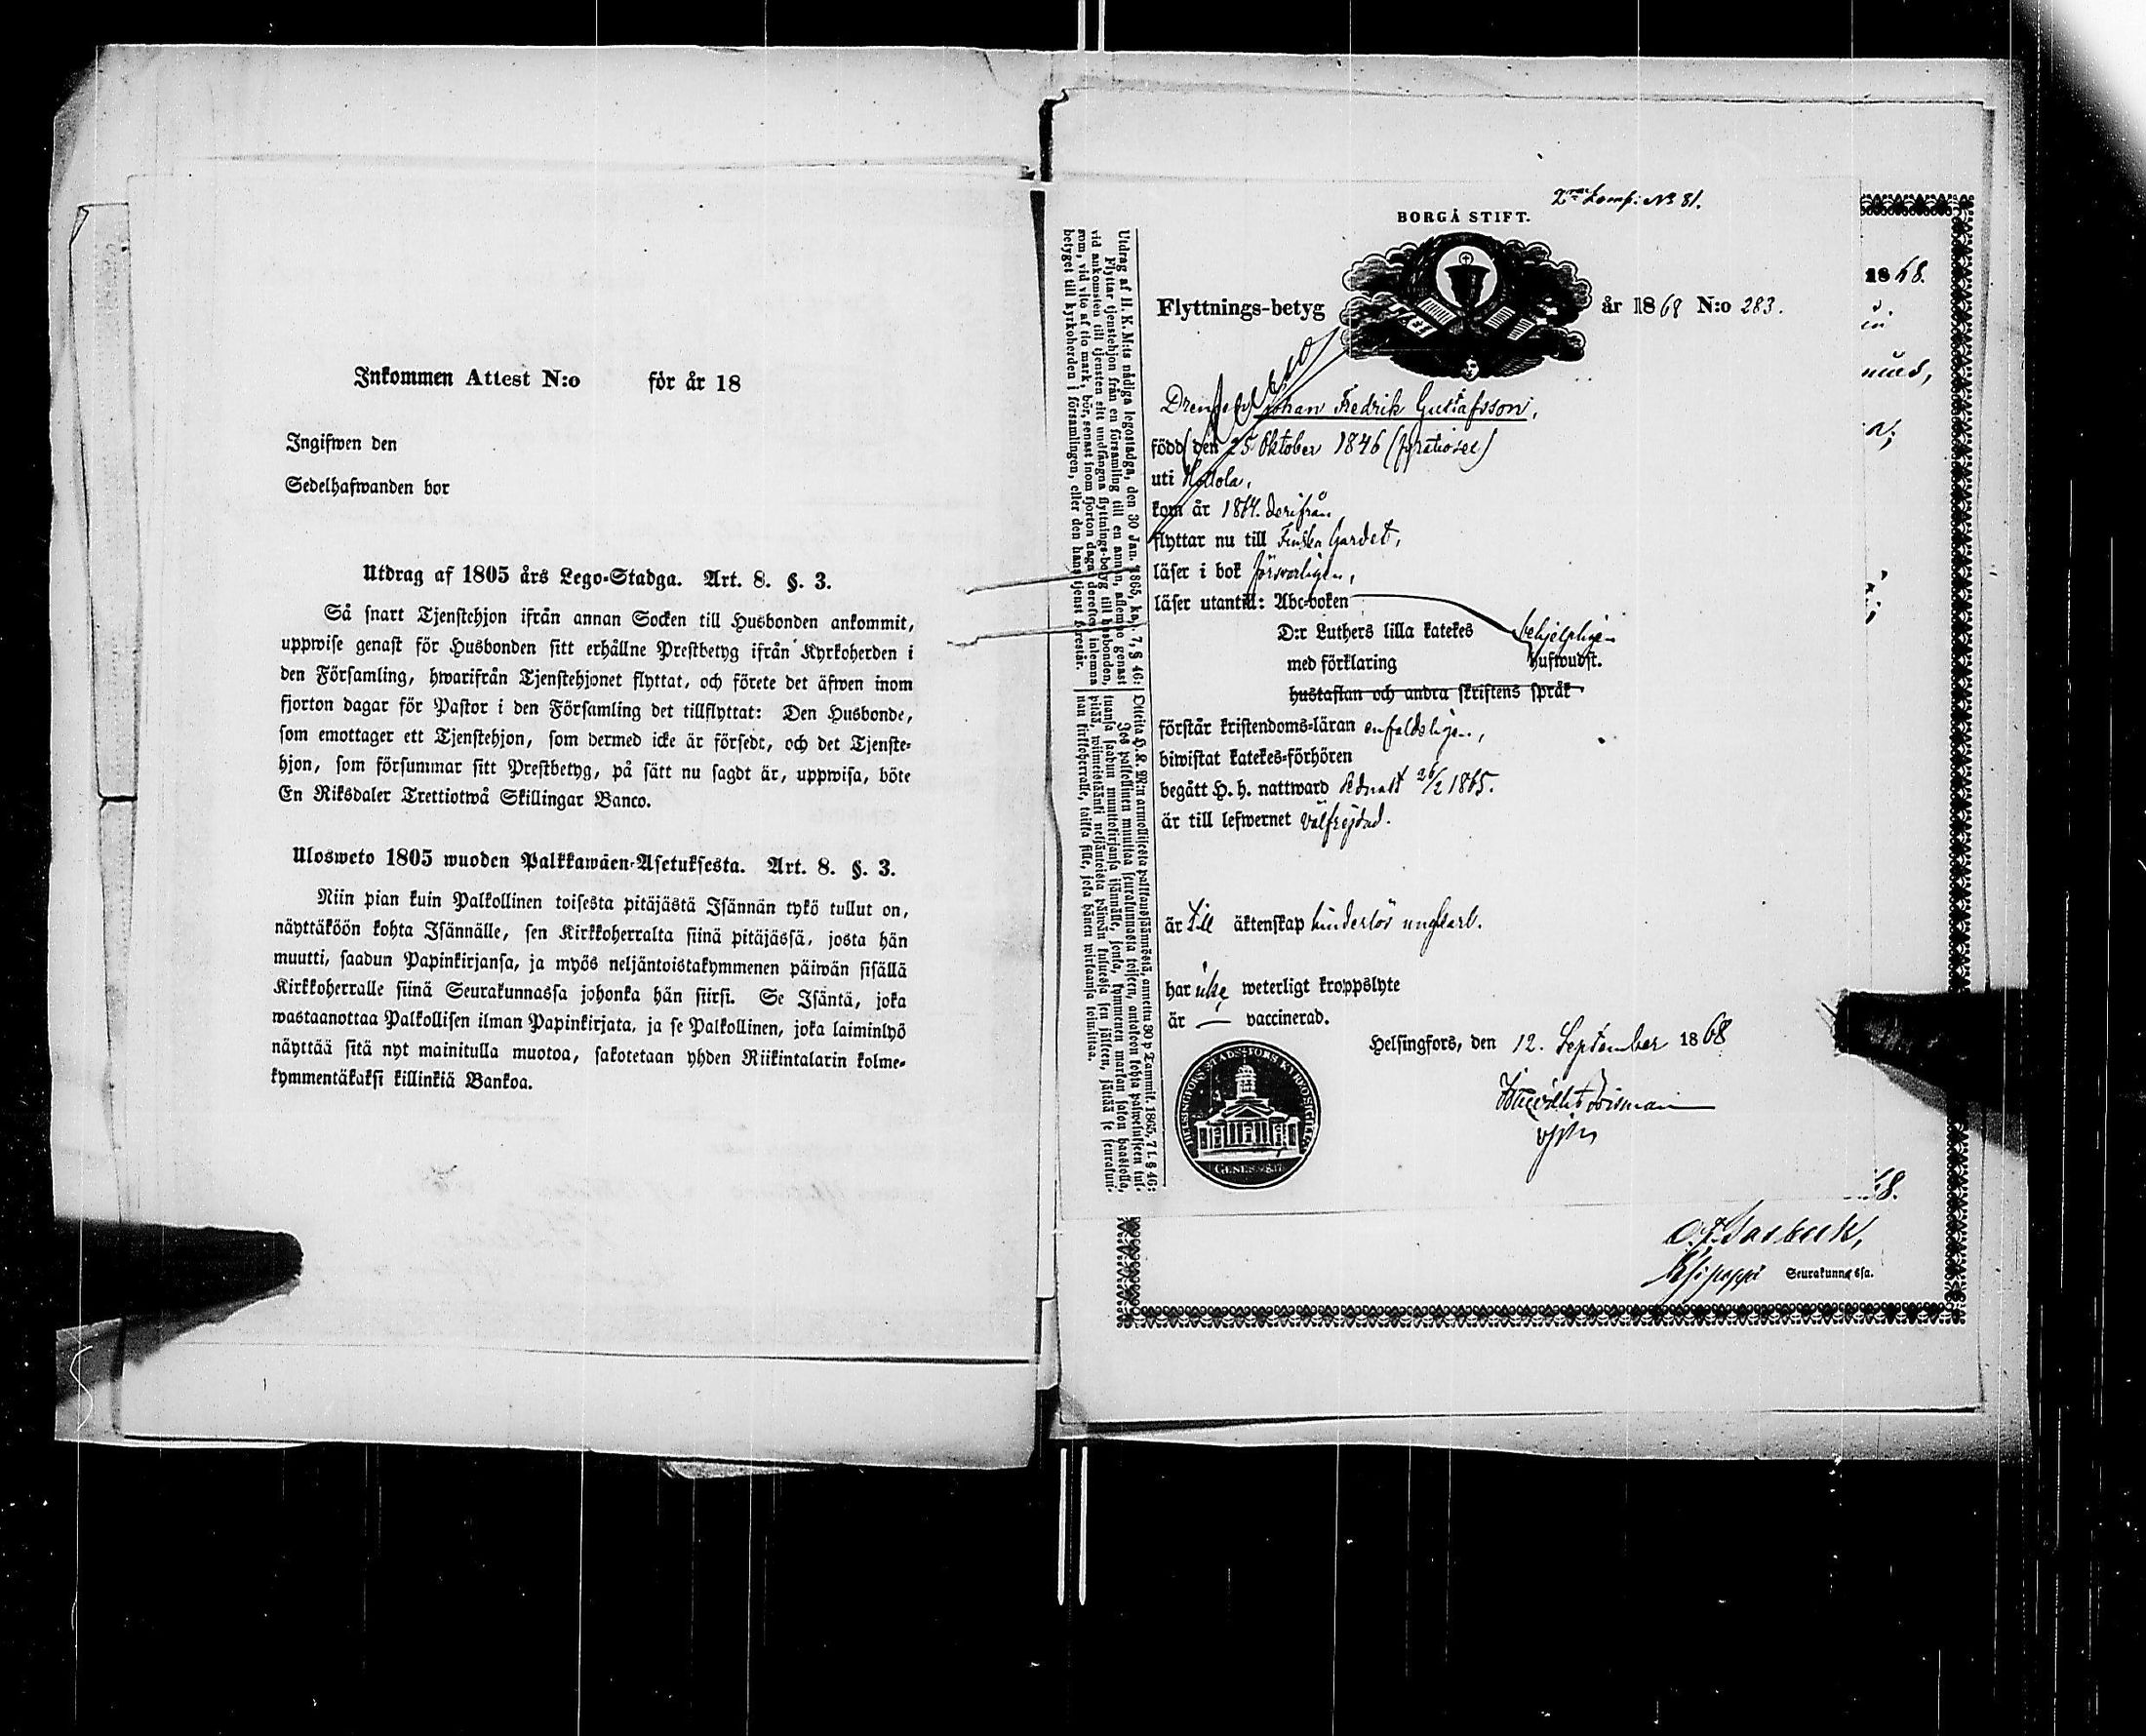 Inkommen Attest N:o för år 18
Ingifwen den
Sedelhafwanden bor
Utdrag af 1805 års Lego-Stadga. Art. 8. §. 3.
Så snart Tjenstehjon ifrån annan Socken till Husbonden ankommit,
uppwise genast för Husbonden sitt erhållne Prestbetyg ifrån Kyrkoherden i
den Församling, hwarifrån Tjenstehjonet flyttat, och förete det äfwen inom
fjorton dagar för Pastor i den Församling det tillflyttat: Den Husbonde,
som emottager ett Tjenstehjon, som dermed icke är försedt, och det Tjenste-
hjon, som försummar sitt Prestbetyg, på sätt nu sagdt är, uppwisa, böte
En Riksdaler Trettiotwå Skillingar Banco.
Ulosweto 1805 wuoden Palkkawäen-Asetuksesta. Art. 8. §. 3.
Niin pian kuin Palkollinen toisesta pitäjästä Isännän tykö tullut on,
näyttäköön kohta Isännälle, sen Kirkkoherralta siinä pitäjässä, josta hän
muutti, saadun Papinkirjansa, ja myös neljäntoistakymmenen päiwän sisällä
Kirkkoherralle siinä Seurakunnassa johonka hän siirsi. Se Isäntä, joka
wastaanottaa Palkollisen ilman Papinkirjata, ja se Palkollinen, joka laiminlyö
näyttää sitä nyt mainitulla muotoa, sakotetaan yhden Riikintalarin kolme-
kymmentäkaksi killinkiä Bankoa.
Utdrag af H. K. M:ts nådiga legostadga, den 30 Jan. 1865, kap. 7, § 46:
Flyttar tjenstehjon från en församling till en annan, aflemne genast
vid ankomsten till tjensten sitt undfångna flyttnings-betyg till husbonden,
som, vid vite af tio mark, bör, senast inom fjorton dagar derefter, inlemna
betyget till kyrkoherden i församlingen, eller den hans tjenst förestår.
Otteita H. K. M:n armollisesta palkkaussäännöstä, annettu 30 p. Tammik. 1865, 7 l. § 46:
Jos palkollinen muuttaa seurakunnasta toiseen, antakoon kohta palwelukseen tul-
tuansa saadun muuttokirjansa isännälle, jonka, kymmenen markan sakon haastolla,
pitää, wiimeistäänki neljäntoista päiwän kuluessa sen jälkeen, jättää se seurakun-
nan kirkkoherralle, taikka sille, joka hänen wirkaansa toimittaa.
BORGÅ STIFT.
Flyttnings-betyg år 1868 N:o 283.
Drengen Johan Fredrik Gustafsson,
född den 25 Oktober 1846
uti Hollola,
kom år 1864. derifrån
flyttar nu till Finska Gardet,
läser i bok försvarligen,
läser utantill: Abc-boken
D:r Luthers lilla katekes behjelpligen
med förklaring hufwudst.
hustaflan och andra skriftens språk
förstår kristendoms-läran enfaldeligen,
biwistat katekes-förhören
begått H. h. nattward sednast 26/2 1865.
är till lefwernet välfrejdad.
är till äktenskap hinderlös ungkarl.
har icke weterligt kroppslyte
är — vaccinerad.
Helsingfors, den 12. September 1868
1868.
68.
Seurakunnassa.